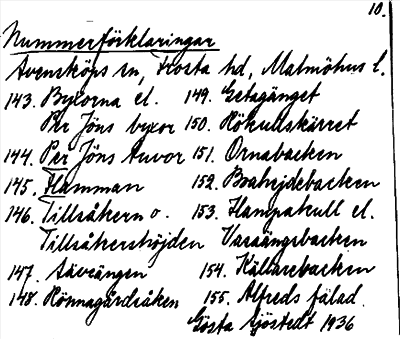 10.
Nummerförklaringar
Svensköps sn, Frosta hd, Malmöhus l.
143. Byxorna el.
Per Jöns byxor
144. Per Jöns tuvor
145. Hamman
146. Tillsåkern o.
Tillsåkershöjden
147. Sävrängen
148. Hönnagårdsåken
149. Getagänget
150. Hökullskärret
151. Ornabacken
152. Brahejdebacken
153. Hampakull el.
Vasaängsbacken
154. Källarebacken
155. Alfreds fälad.
Gösta Sjöstedt 1936